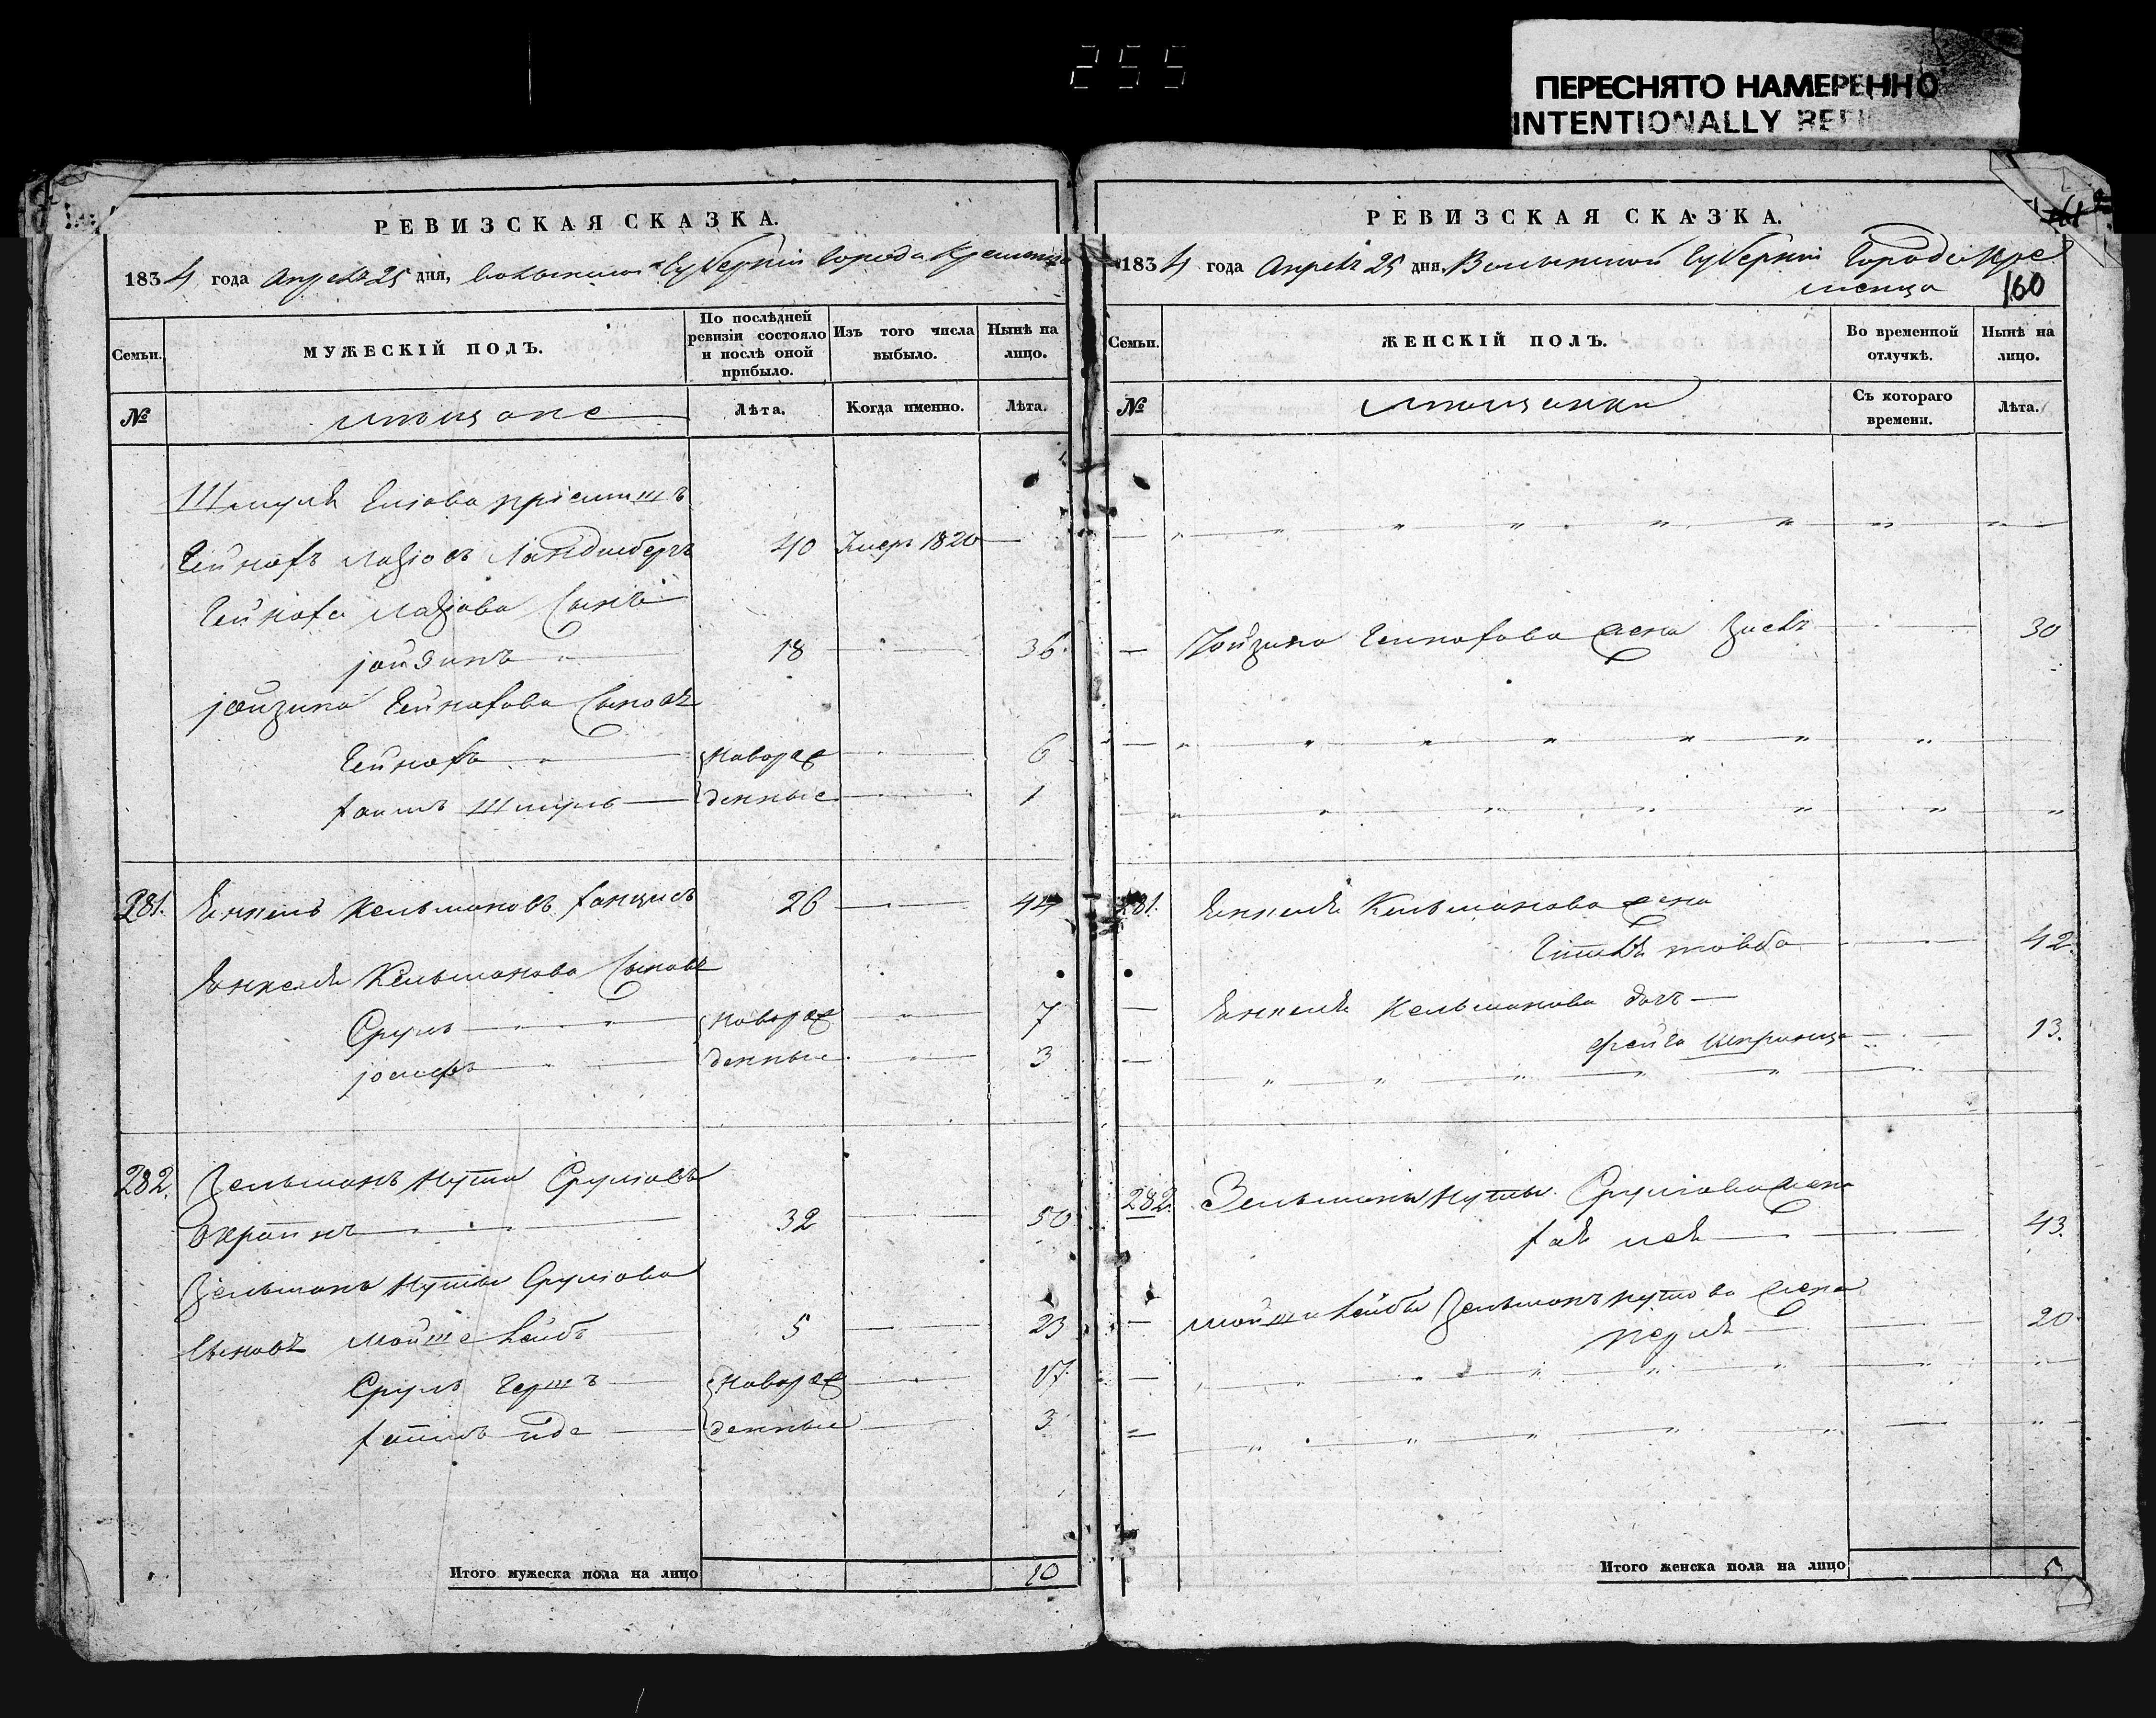 255
ПЕРЕСНЯТО НАМЕРЕННО
INTENTIONALLY
РЕВИЗСКАЯ СКАЗКА.
1834 года Апреля 25 дня, Волынской Губернiи города Кременца
Семьи.
МУЖЕСКІЙ ПОЛЪ.
По послѣдней ревизіи состояло и послѣ оной прибыло.
Изъ того числа выбыло.
Нынѣ на лицо.
№
мѣщане
Лѣта.
Когда именно.
Лѣта.
Шмуля
Гейнохъ Ландшбергъ 40 Умеръ 1820
Гейноха сынъ
18 36
Гейнохова сыновья
Гейнохъ новорож 6
Хаимъ Шмуль денные 1
281. Янкель Кельмановъ 26 44
Янкеля Кельманова сыновья
Сруль новорож 7
Іосифъ денные 3
282. Зельманъ Нута Сруліовъ
32 50
Зельмана Нуты Сруліова
сыновья Мойше Лейбъ 5 23
Сруль Гершъ новорож 17
Хаимъ денные 3
Итого мужеска пола на лицо 10
РЕВИЗСКАЯ СКАЗКА.
161
1834 года Апреля 25 дня. Волынской Губернiи Города Кре
менца 160
Семьи.
ЖЕНСКІЙ ПОЛЪ.
Во временной отлучкѣ.
Нынѣ на лицо.
№
мѣщанки
Съ котораго времени.
Лѣта.
Гейнохова жена 30
281. Янкеля Кельманова жена
товба 42
Янкеля Кельманова дочь
Фейга Шпринца 13.
282. Зельмана Нуты Сруліова жена
43.
Мойши Лейбы Зельманъ Нутова жена
Перля 20
Итого женска пола на лицо 5